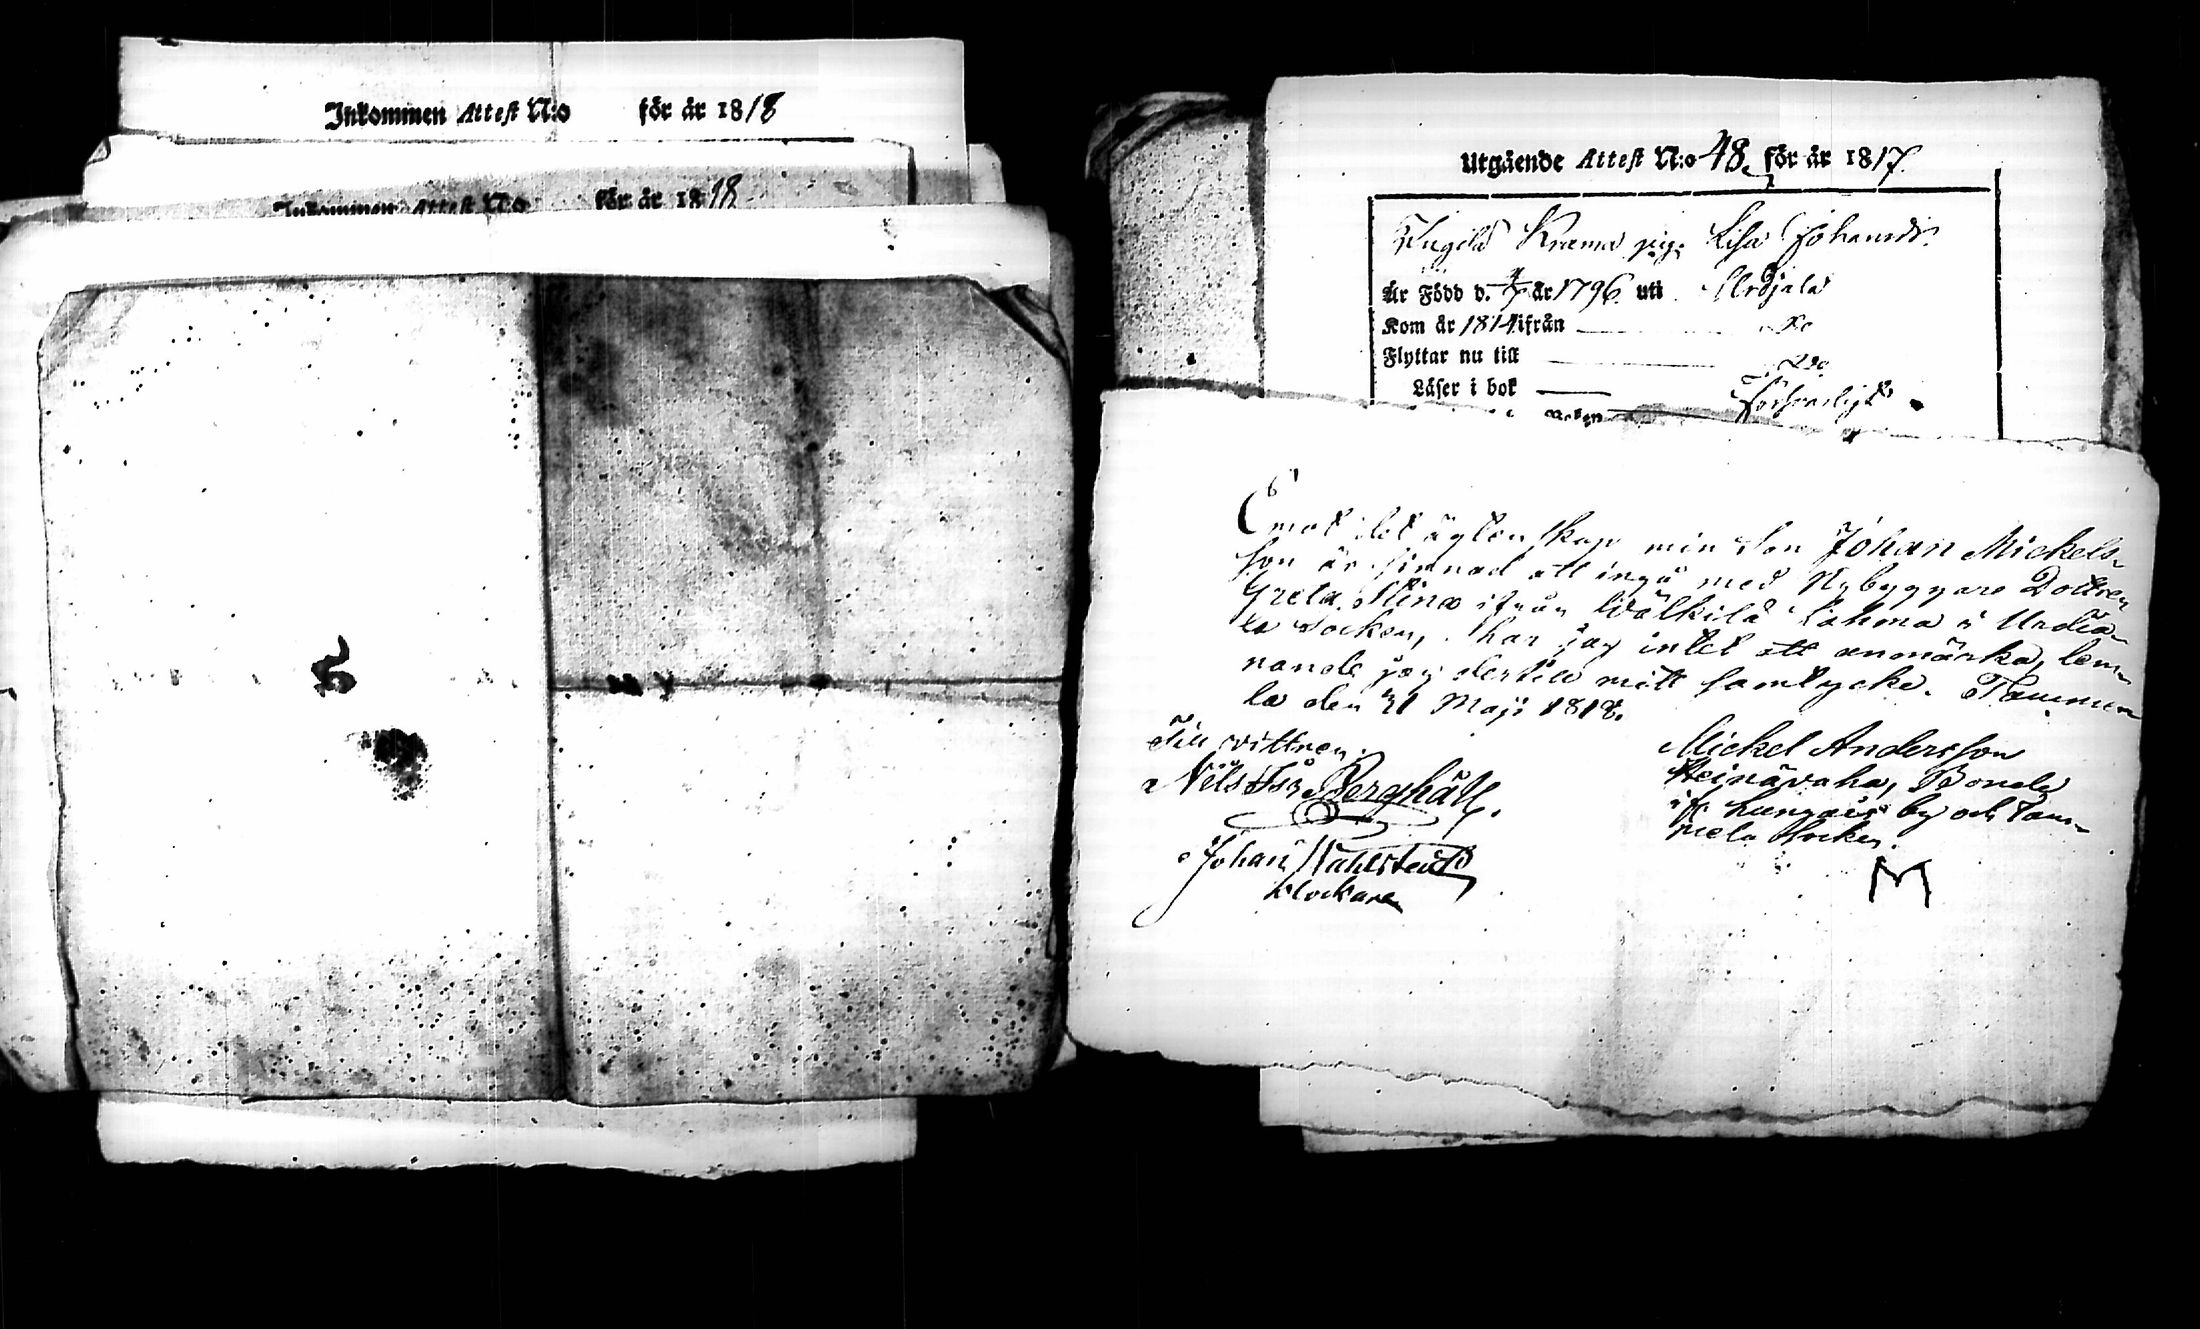 Inkommen Attest N:o för år 1818
Inkommen Attest N:o för år 1818
Utgående Attest N:o 48. för år 1817.
Krama pig. Lisa Johansdr.
Är Född d. år 1796. uti Urdjala
Kom år 1814 ifrån
Flyttar nu till
Läser i bok Försvarligt
Emot det äktenskap min Son Johan Mickels-
son är sinnad att ingå med Nybyggare Dottren
Greta Stina ifrån Wälkilä Lahma i Urdia-
la Socken, har jag intet att anmärka, lem-
nande jag dertill mitt samtycke. Tammm
la den 31 Maji 1818.
Till vittnen:
Nils Isr Berghäll.
Johan Wahlstedt
klockare
Mickel Andersson
Heinävaha, Bonde
by och Tam-
mela Socken.
M